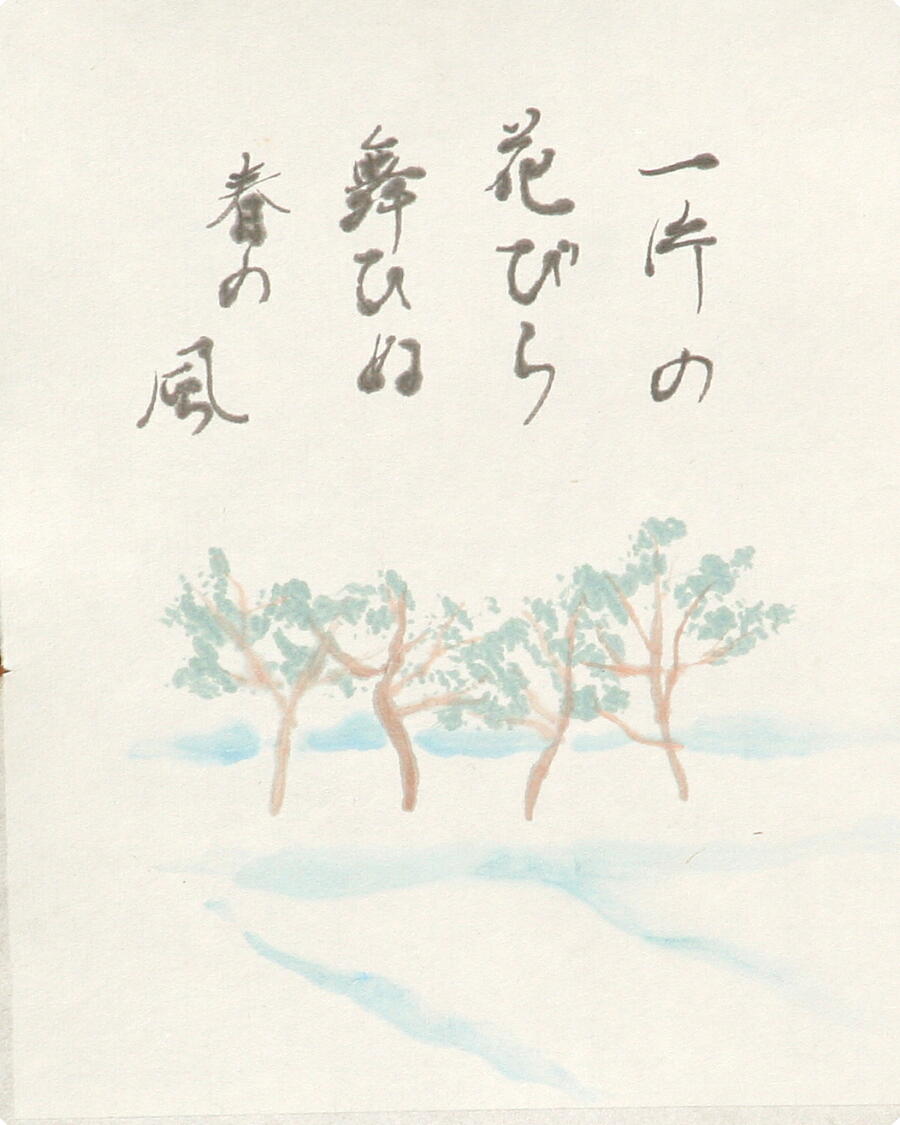 一片の
花びら
舞ひぬ
春の風